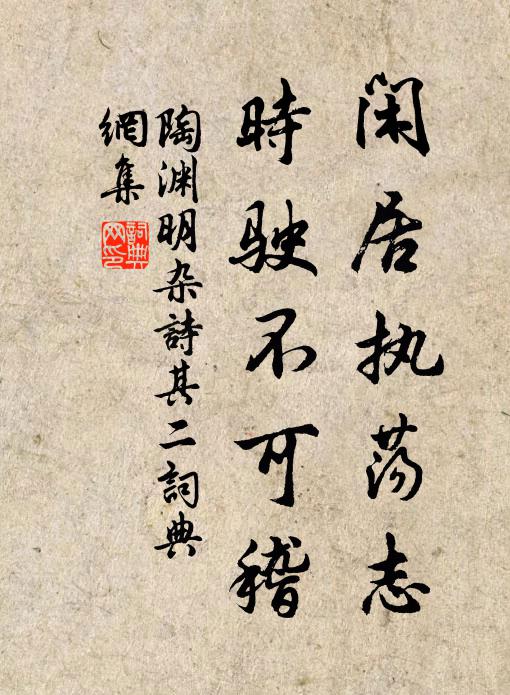 闲居执荡志
時駛不可稽
陶渊明杂詩其二詞典
網集
詞典
网印